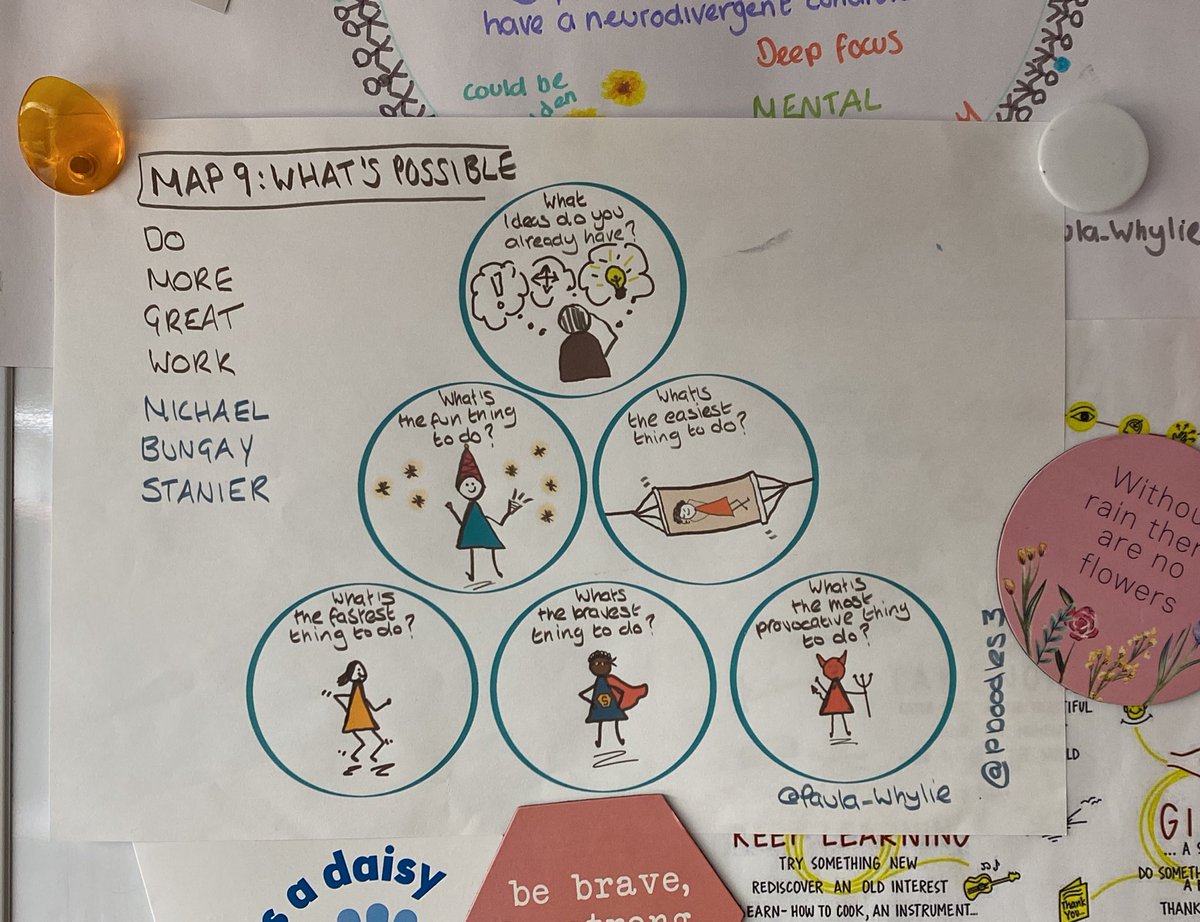 have a neurodivergent
Deep focus
could be
MENTAL
MAP 9: WHAT'S POSSIBLE
DO
MORE
GREAT
WORK
MICHAEL
BUNGAY
STANIER
What
Ideas do you
already have?
!
What is
the fun thing
to do?
What is
the easiest
thing to do?
What is
the fastest
thing to do?
Whats
the bravest
thing to do?
S
What is
the most
provocative thing
to do?
@Paula_Whylie
@pdoodles3
ula_Whylie
rain
are no
flowers
a daisy
be brave,
KEEP LEARNING
TRY SOMETHING NEW
REDISCOVER AN OLD INTEREST
HOW TO COOK, AN INSTRUMENT...
... A
DO
THANK
Thank
You